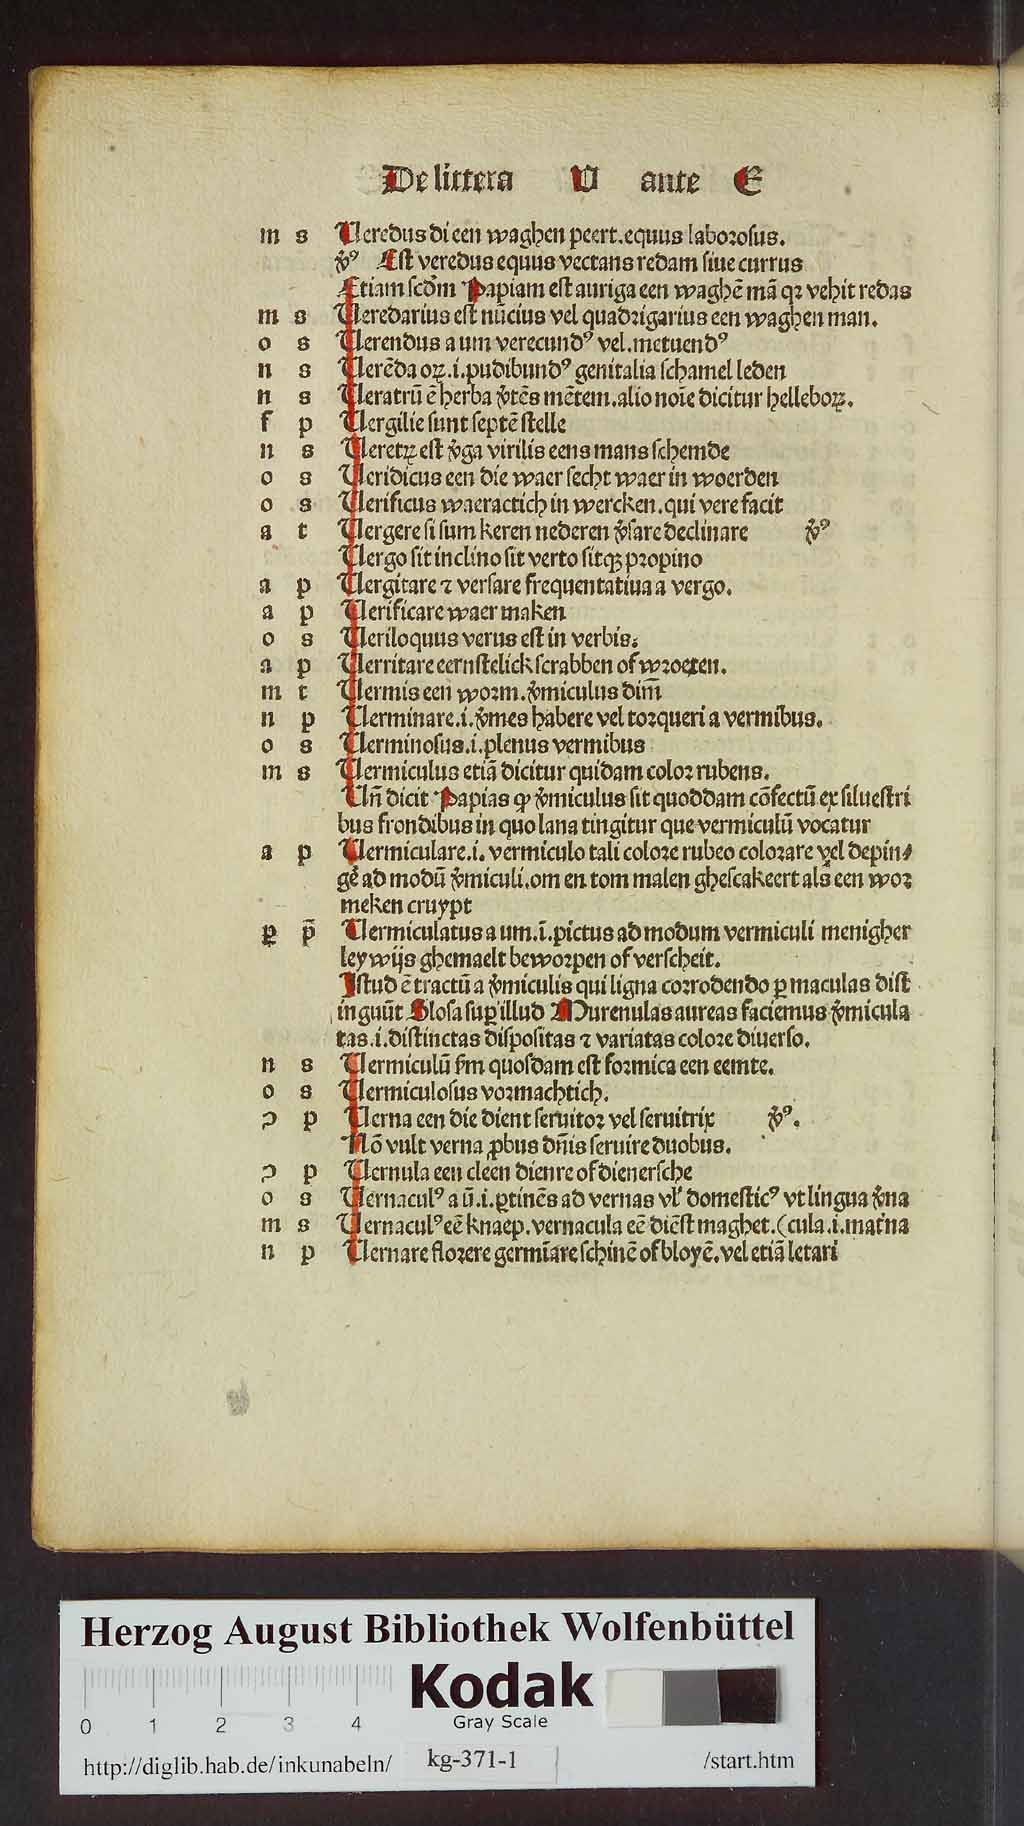 De littera U ante E
m s Ueredus di een waghen peert. equus laborosus.
v̓ꝰ Est veredus equus vectans redam siue currus
Etiam scd̓m Papiam est auriga een waghē mā qꝛ vehit redas
m s Ueredarius est nūcius vel quadrigarius een waghen man.
o s Uerendus a um verecundꝰ vel. metuendꝰ
n s Uerēda oꝝ. i. pudibundꝰ genitalia schamel leden
n s Ueratrū ē herba v̓tēs mētem. alio noīe dicitur helleboꝝ.
f p Uergilie sunt septē stelle
n s Ueretꝝ est v̓ga virilis eens mans schemde
o s Ueridicus een die waer secht waer in woerden
o s Uerificus waeractich in wercken. qui vere facit
a t Uergere si sum keren nederen v̓sare declinare v̓ꝰ
Uergo sit inclino sit verto sitqꝫ propino
a p Uergitare ⁊ versare frequentatiua a vergo.
a p Uerificare waer maken
o s Ueriloquus verus est in verbis.
a p Uerritare eernstelick scrabben of wroeten.
m t Uermis een worm. v̓miculus dim̄
n p Uerminare. i. v̓mes habere vel torqueri a vermibus.
o s Uerminosus. i. plenus vermibus
m s Uermiculus etiā dicitur quidam color rubens.
Un̄ dicit Papias ꝙ v̓miculus sit quoddam cōfectū ex siluestri
bus frondibus in quo lana tingitur que vermiculū vocatur
a p Uermiculare. i. vermiculo tali colore rubeo colorare vel depin⸗
ge̓ ad modū v̓miculi. om en tom malen ghescakeert als een wor
meken cruypt
ꝑ p̄ Uermiculatus a um. i. pictus ad modum vermiculi menigher
ley wijs ghemaelt beworpen of verscheit.
Istud ē tractū a v̓miculis qui ligna corrodendo ꝑ maculas dist
inguūt Glosa suꝑ illud Murenulas aureas faciemus v̓micula
tas. i. distinctas dispositas ⁊ variatas colore diuerso.
n s Uermiculū fm quosdam est formica een eemte.
o s Uermiculosus vormachtich.
ↄ p Uerna een die dient seruitor vel seruitrix v̓ꝰ.
Nō vult verna ꝓbus dn̄is seruire duobus.
ↄ p Uernula een cleen dienre of dienersche
o s Uernaculꝰ a ū. i. ꝑtinēs ad vernas vl̓ domesticꝰ vt lingua v̓na
m s Uernaculꝰ eē knaep. vernacula eē diēst maghet. (cula. i. mat̓na
n p Uernare florere germīare schinē of bloyē. vel etiā letari
Herzog August Bibliothek Wolfenbüttel
0 1 2 3 4
Kodak
Gray Scale
http://diglib.hab.de/inkunabeln/ kg-371-1 /start.htm